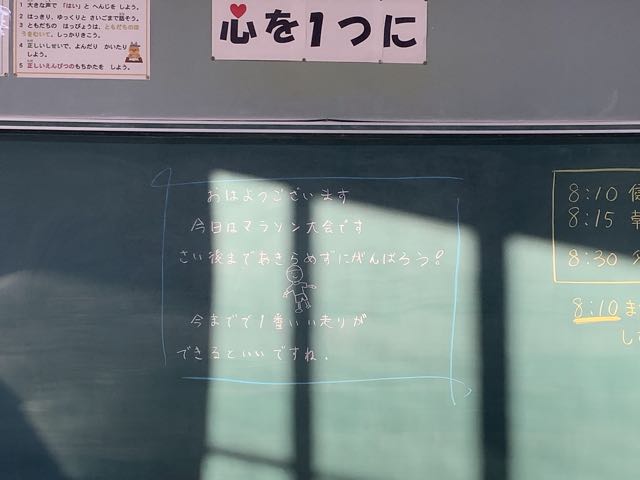 1 大きな声で「はい」と へんじを しよう。
2 はっきり、ゆっくりと さいごまで話そう。
3 ともだちの はっぴょうは、ともだちのほうをむいて、しっかりきこう。
4 正しいしせいで、よんだり かいたり しよう。
5 正しいえんぴつのもちかたを しよう。
心を1つに
おはようございます
今日はマラソン大会です
さい後まであきらめずにがんばろう!
今までで1番いい走りが
できるといいですね.
8:10
8:15
8:30
8:10ま